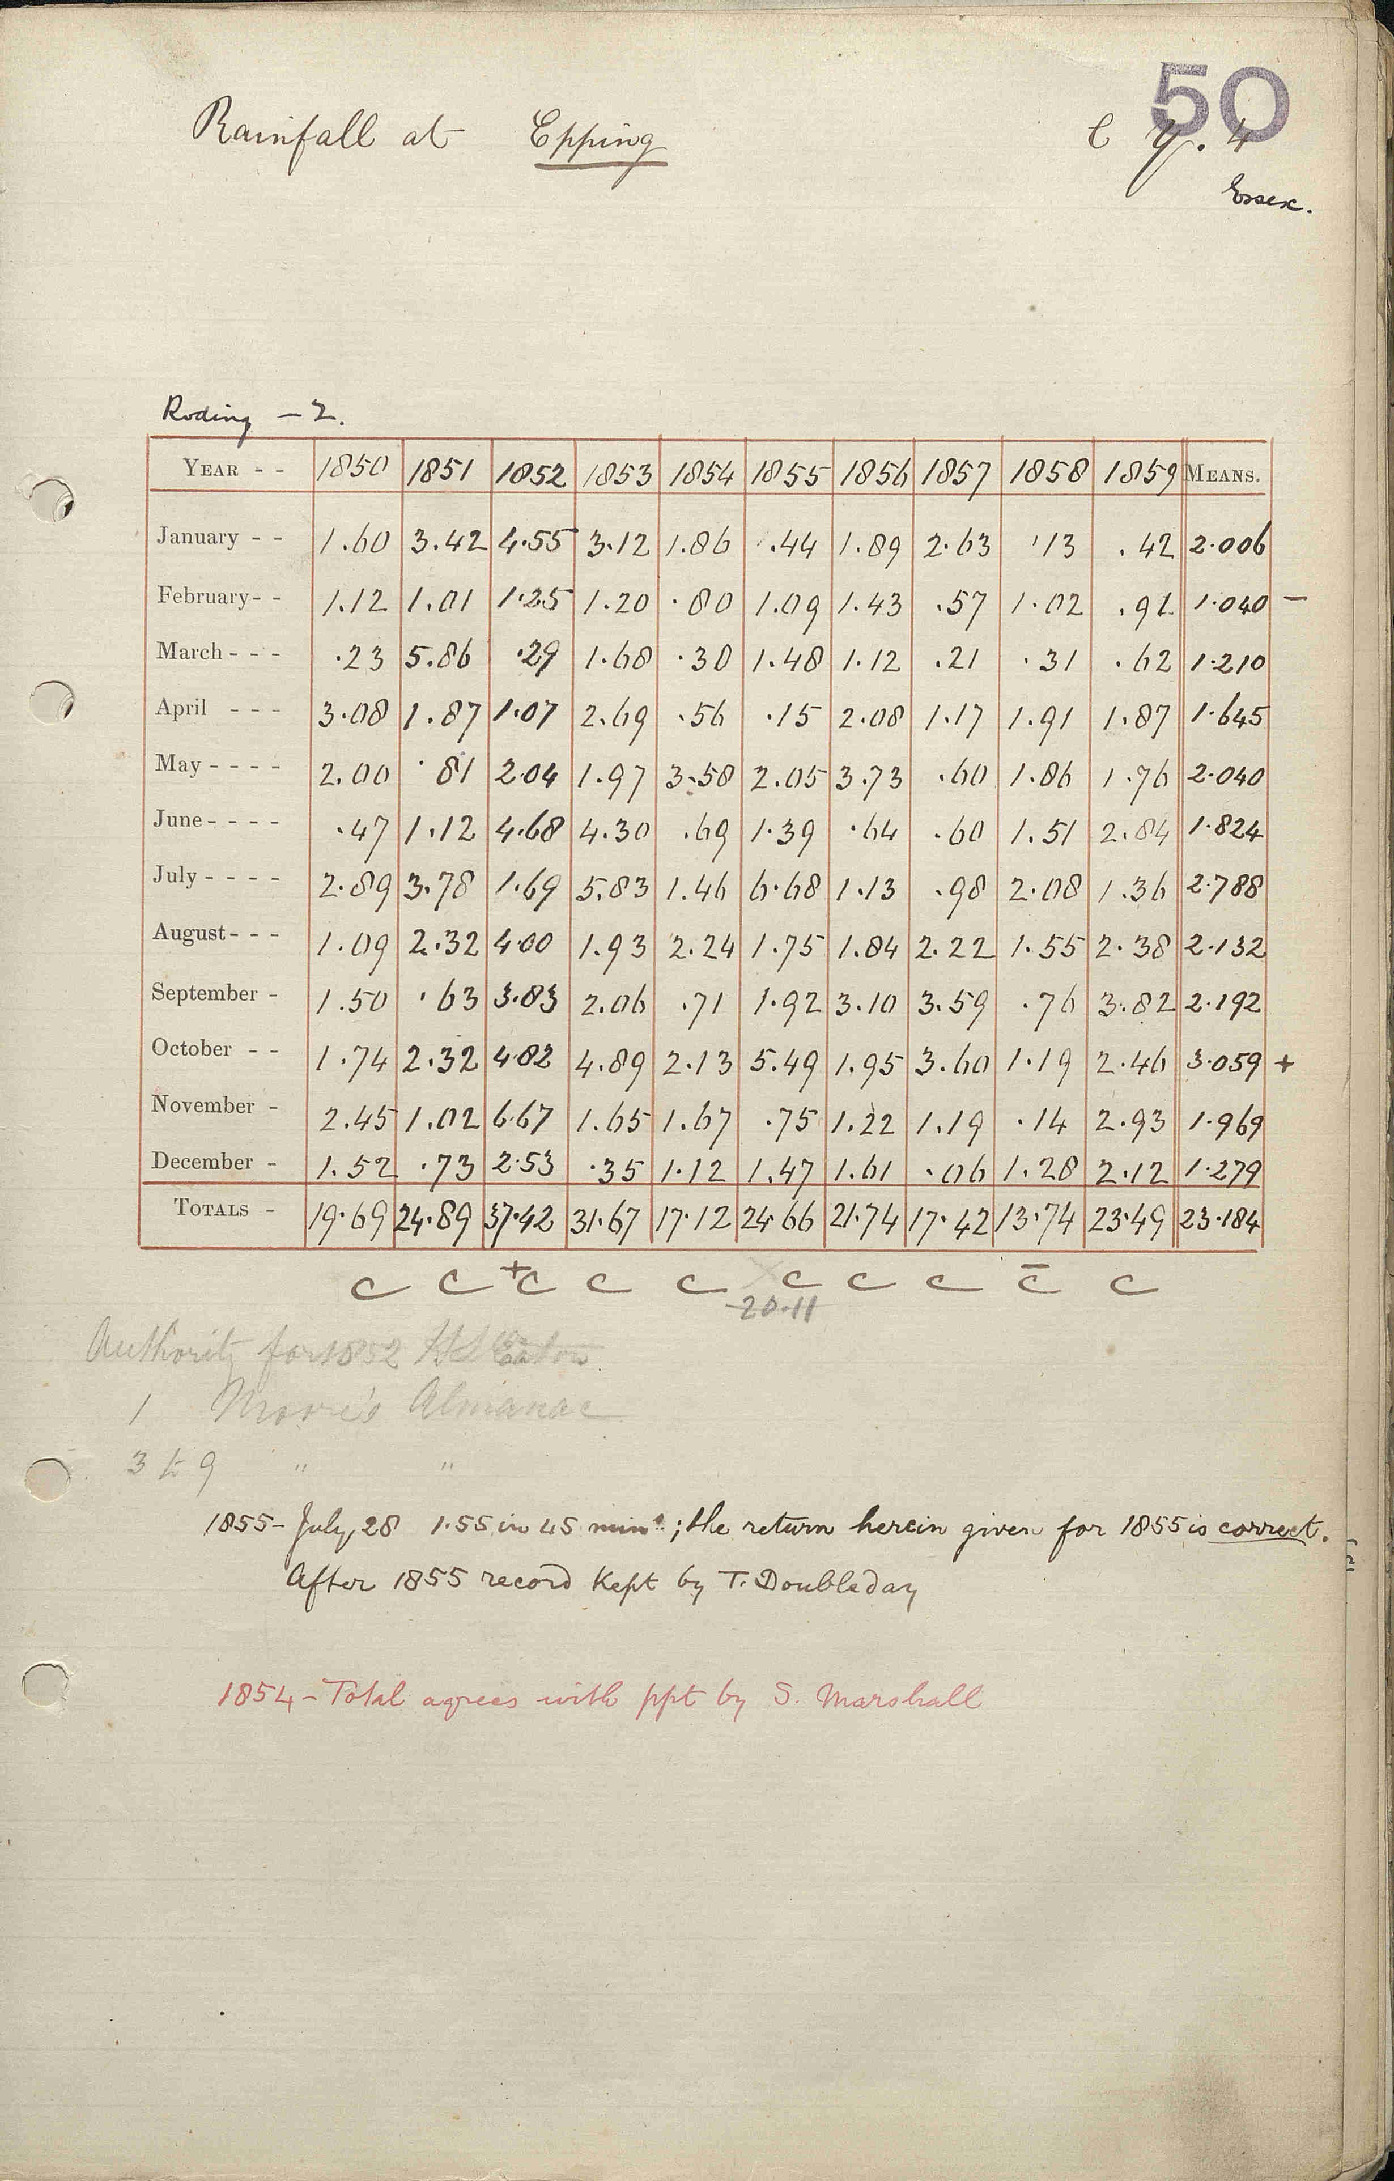 50
Rainfall at Epping
Essex.
Roding - 2.
YEAR - - 1850 1851 1852 1853 1854 1855 1856 1857 1858 1859 MEANS.
January - - 1.60 3.42 4.55 3.12 1.86 .44 1.89 2.63 .13 .42 2.006
February - - 1.12 1.01 1.25 1.20 .80 1.09 1.43 .57 1.02 .91 1.040 -
March - - - .23 5.86 .29 1.68 .30 1.48 1.12 .21 .31 .62 1.210
April - - - 3.08 1.87 1.07 2.69 .56 .15 2.08 1.17 1.91 1.87 1.645
May - - - - 2.00 .81 2.04 1.97 3.58 2.05 3.73 .60 1.86 1.76 2.040
June - - - - .47 1.12 4.68 4.30 .69 1.39 .64 .60 1.51 2.84 1.824
July - - - - 2.89 3.78 1.69 5.83 1.46 6.68 1.13 .98 2.08 1.36 2.788
August - - - 1.09 2.32 4.00 1.93 2.24 1.75 1.84 2.22 1.55 2.38 2.132
September - 1.50 .63 3.83 2.06 .71 1.92 3.10 3.59 .76 3.82 2.192
October - - 1.74 2.32 4.82 4.89 2.13 5.49 1.95 3.60 1.19 2.46 3.059 +
November - 2.45 1.02 6.67 1.65 1.67 .75 1.22 1.19 .14 2.93 1.969
December - 1.52 .73 2.53 .35 1.12 1.47 1.61 .06 1.28 2.12 1.279
TOTALS - 19.69 24.89 37.42 31.67 17.12 24.66 21.74 17.42 13.74 23.49 23.184
C C + C C C C C C - C C
20.11
Authority for 1852 H S Eaton
1 Moore's Almanac
3 to 9 " "
1855 - July, 28 1.55 in 45 mins; the return herein given for 1855 is correct.
After 1855 record kept by T. Doubleday
1854 - Total agrees with ppt by S. Marshall